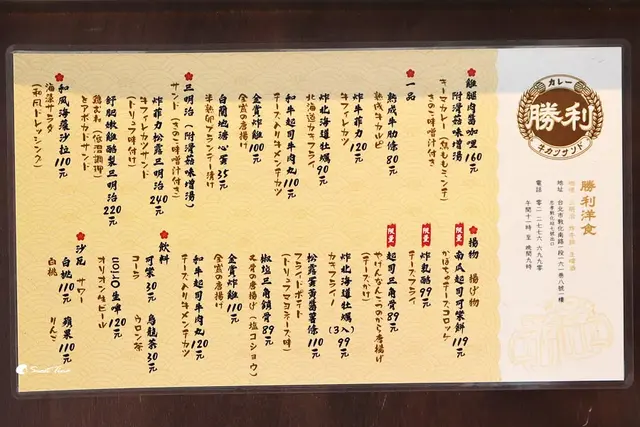 カレー
勝利
チカツサンド
勝利洋食
地址 台北市敦化南路一段161巷8號1樓
電話 零二 二七七六 六九九零
午間十一時 至 晚間九時
雞腿肉醬咖哩 160元
附滑菇味噌湯
キーマカレー(鶏ももミンチ)
きのこ味噌汁付き
一品
熟成牛肋條 80元
熟成牛カルビ
炸牛菲力 120元
牛フィレカツ
炸北海道牡蠣 90元
北海道カキフライ
和牛起司牛肉丸 110元
チーズ入り牛メンチカツ
金賞炸雞 100元
金賞の唐揚げ
白蘭地溏心蛋 35元
半熟卵ブランデー漬け
三明治(附滑菇味噌湯)
サンド(きのこ味噌汁付き)
炸菲力松露三明治 240元
牛フィレカツサンド
(トリュフ味付け)
舒肥嫩雞酪梨三明治 220元
鶏むね(低溫調理)
とアボカドサンド
和風海藻沙拉 110元
海藻サラダ
(和風ドレッシング)
揚物 揚げ物
南瓜起司可樂餅 119元
かぼちゃチーズコロッケ
限量
炸乳酪 99元
チーズフライ
限量
起司三角骨 89元
やげんなんこつのから唐揚げ
(チーズかけ)
限量
炸北海道牡蠣(3入) 99元
カキフライ
松露蛋黃醬薯條 110元
フライドポテト
(トリュフマヨネーズ味)
椒鹽三角鎖骨 89元
三角骨の唐揚げ(塩コショウ)
金賞炸雞 110元
金賞の唐揚げ
和牛起司牛肉丸 120元
チーズ入り牛メンチカツ
飲料
可樂 30元 烏龍茶 30元
コーラ ウロン茶
ORION生啤 120元
オリオン生ビール
沙瓦 サワー
白桃 110元 蘋果 110元
白桃 りんご